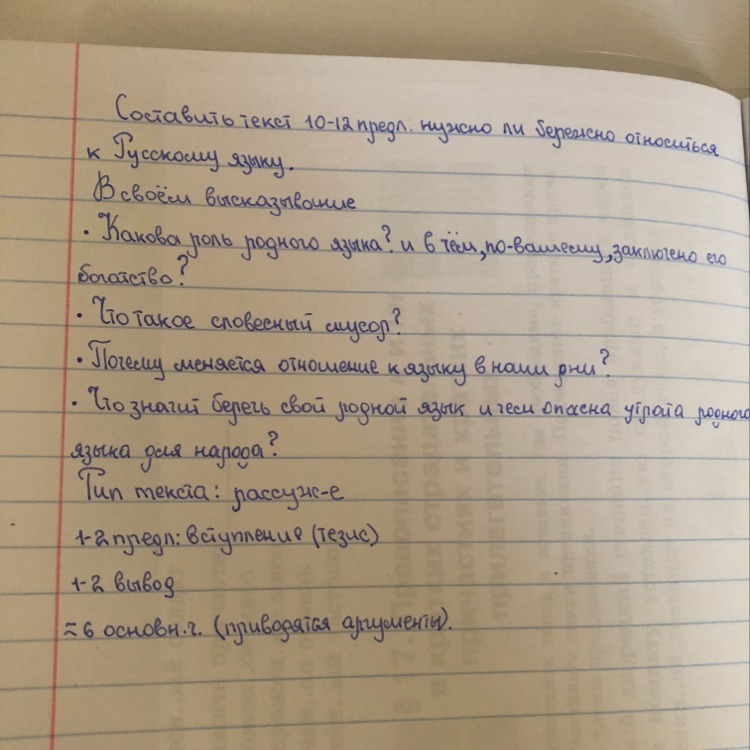 Составить текст 10-12 предл. нужно ли бережно относиться
к Русскому языку.
В своём высказывание
• Какова роль родного языка? и в чём, по-вашему, заключено его
богатство?
• Что такое словесный мусор?
• Почему меняется отношение к языку в наши дни?
• Что значит беречь свой родной язык и чем опасна утрата родного
языка для народа?
Тип текста: рассуж-е
1-2 предл: вступление (тезис)
1-2 вывод
≈ 6 основн. ч. (приводятся аргументы).